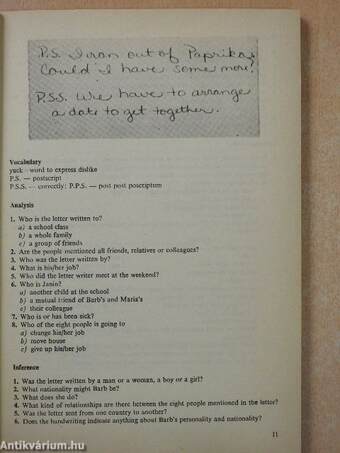 P.S. I ran out of Paprika,
Could I have some more?
P.S.S. We have to arrange
a date to get together.
Vocabulary
yuck – word to express dislike
P.S. — postscript
P.S.S. — correctly: P.P.S. – post post poscriptum
Analysis
1. Who is the letter written to?
a) a school class
b) a whole family
c) a group of friends
2. Are the people mentioned all friends, relatives or colleagues?
3. Who was the letter written by?
4. What is his/her job?
5. Who did the letter writer meet at the weekend?
6. Who is Janin?
a) another child at the school
b) a mutual friend of Barb's and Maria's
c) their colleague
7. Who is or has been sick?
8. Who of the eight people is going to
a) change his/her job
b) move house
c) give up his/her job
Inference
1. Was the letter written by a man or a woman, a boy or a girl?
2. What nationality might Barb be?
3. What does she do?
4. What kind of relationships are there between the eight people mentioned in the letter?
5. Was the letter sent from one country to another?
6. Does the handwriting indicate anything about Barb's personality and nationality?
11
Antikvárium.hu